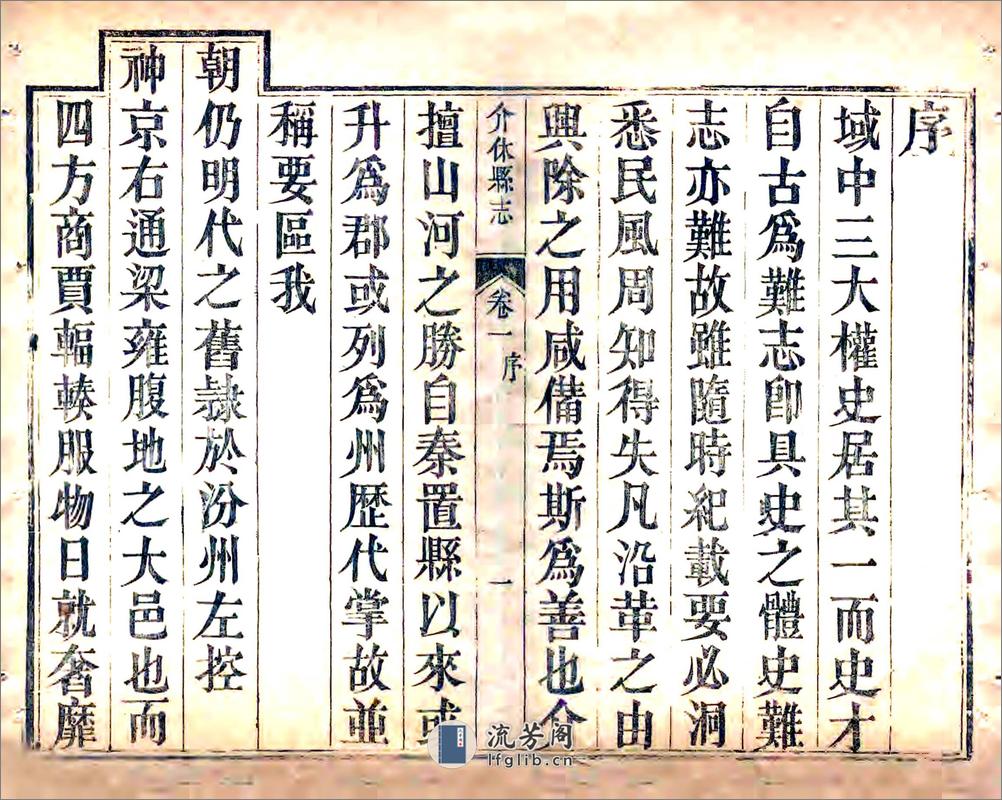 序
域中三大權史居其一而史才
自古爲難志卽具史之體史難
志亦難故雖隨時紀載要必洞
悉民風周知得失凡沿革之由
興除之用咸備焉斯爲善也介
介休縣志 卷一 序 一
擅山河之勝自秦置縣以來或
升爲郡或列爲州歷代掌故並
稱要區我
朝仍明代之舊隷於汾州左控
神京右通梁雍腹地之大邑也而
四方商賈輻輳服物日就奢靡
流芳阁
lfglib.cn